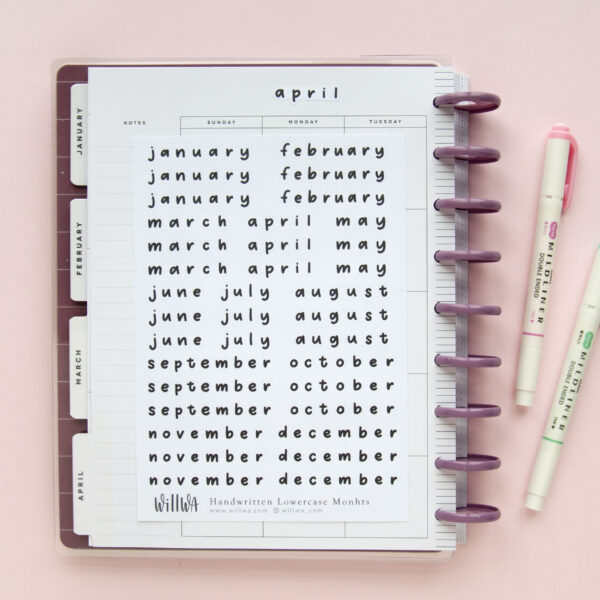 april
NOTES SUNDAY MONDAY TUESDAY
january february
january february
january february
march april may
march april may
march april may
june july august
june july august
june july august
september october
september october
september october
november december
november december
november december
WillWA Handwritten Lowercase Monhts
www.willwa.com willwa_com
JANUARY
FEBRUARY
MARCH
APRIL
MILDLINER
DOUBLE ENDED
MILDLINER
DOUBLE ENDED